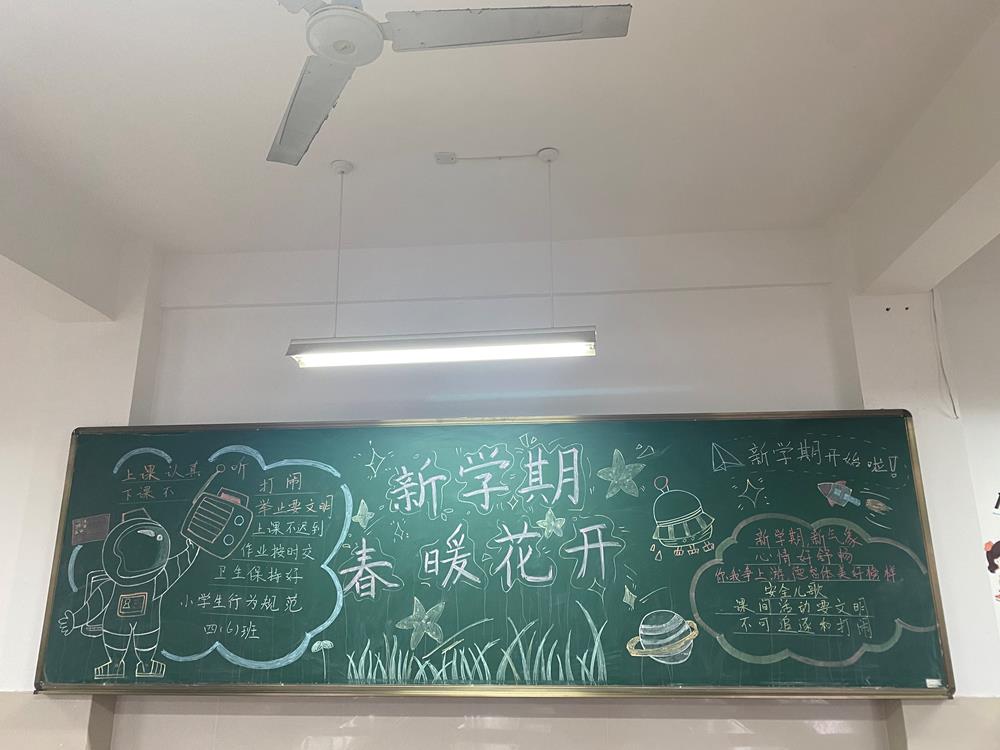 上课认真听
下课不打闹
举止要文明
上课不迟到
作业按时交
卫生保持好
小学生行为规范
四(6)班
新学期
春暖花开
新学期开始啦!
新学期新气象
心情好舒畅
你我争上游 德智体美好榜样
安全儿歌
课间活动要文明
不可追逐和打闹